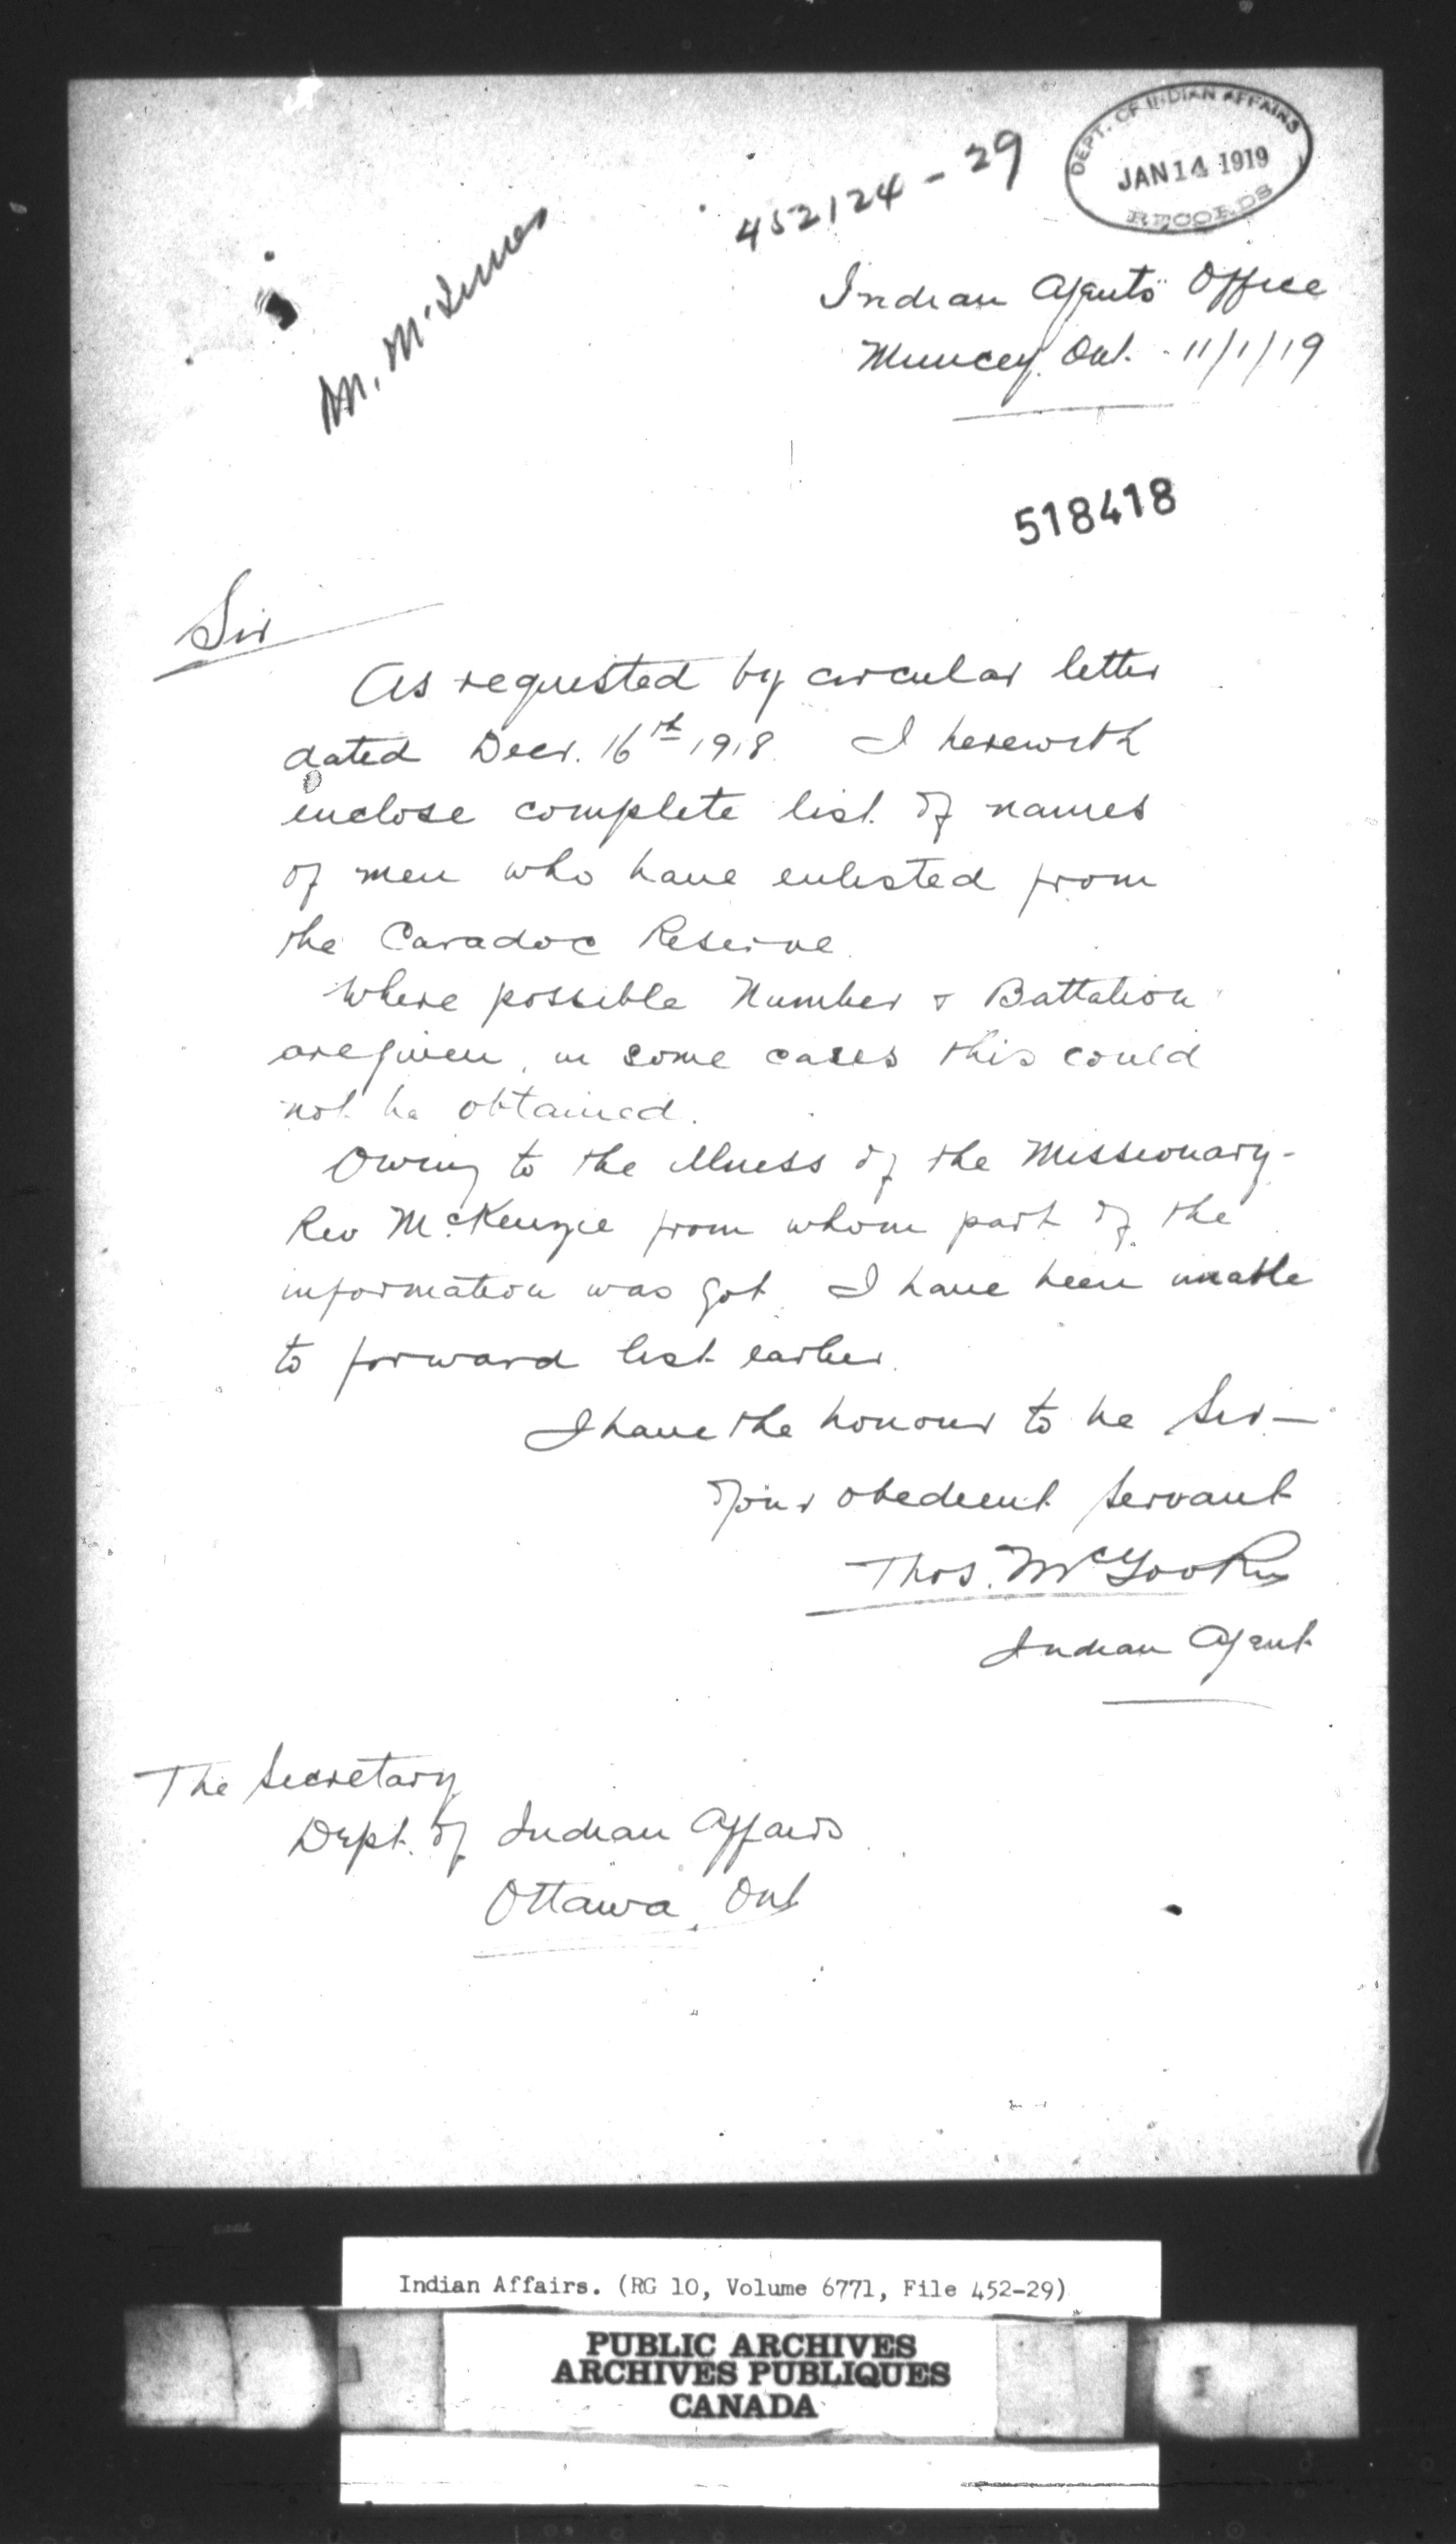 DEPT. OF INDIAN AFFAIRS
JAN 14 1919
RECORDS
452124-29
M. McInnes
Indian Agents Office
Muncey, Ont. 11/1/19
518418
Sir
As requested by circular letter
dated Decr. 16th 1918 I herewith
enclose complete list of names
of men who have enlisted from
the Caradoc Reserve.
Where possible Number & Battalion
are given, in some cases this could
not be obtained.
Owing to the illness of the Missionary-
Rev McKenzie from whom part of the
information was got I have been unable
to forward list earlier.
I have the honour to be Sir—
Your obedient servant
Thos. McGookin
Indian Agent
The Secretary
Dept. of Indian Affairs
Ottawa, Ont
Indian Affairs. (RG 10, Volume 6771, File 452-29)
PUBLIC ARCHIVES
ARCHIVES PUBLIQUES
CANADA